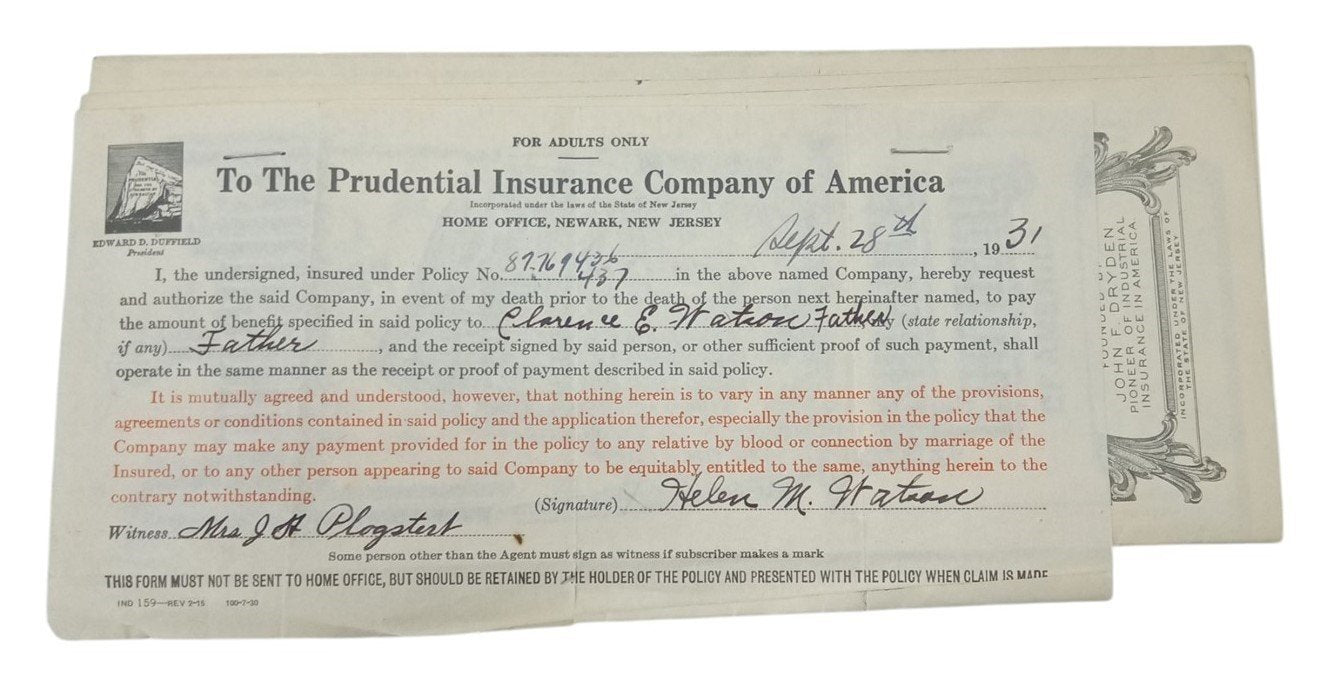 FOR ADULTS ONLY
To The Prudential Insurance Company of America
Incorporated under the laws of the State of New Jersey
HOME OFFICE, NEWARK, NEW JERSEY
THE PRUDENTIAL HAS THE STRENGTH OF GIBRALTAR
EDWARD D. DUFFIELD
President
Sept. 28th, 1931
87769436
I, the undersigned, insured under Policy No. 437 in the above named Company, hereby request
and authorize the said Company, in event of my death prior to the death of the person next hereinafter named, to pay
the amount of benefit specified in said policy to Clarence E. Watson Father my (state relationship,
if any) Father, and the receipt signed by said person, or other sufficient proof of such payment, shall
operate in the same manner as the receipt or proof of payment described in said policy.
It is mutually agreed and understood, however, that nothing herein is to vary in any manner any of the provisions,
agreements or conditions contained in said policy and the application therefor, especially the provision in the policy that the
Company may make any payment provided for in the policy to any relative by blood or connection by marriage of the
Insured, or to any other person appearing to said Company to be equitably entitled to the same, anything herein to the
contrary notwithstanding.
(Signature) Helen M. Watson
Witness Mrs J H Plogstert
Some person other than the Agent must sign as witness if subscriber makes a mark
THIS FORM MUST NOT BE SENT TO HOME OFFICE, BUT SHOULD BE RETAINED BY THE HOLDER OF THE POLICY AND PRESENTED WITH THE POLICY WHEN CLAIM IS MADE
IND 159—REV 2-16 100-7-30
FOUNDED BY
JOHN F. DRYDEN
PIONEER OF INDUSTRIAL
INSURANCE IN AMERICA
INCORPORATED UNDER THE LAWS OF
THE STATE OF NEW JERSEY